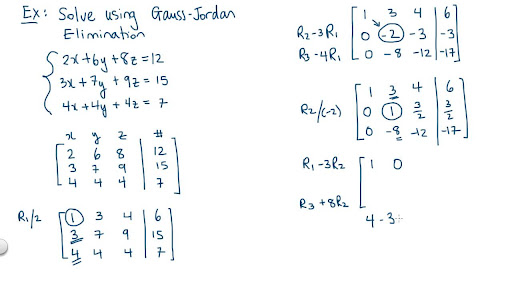 Ex: Solve using Gauss-Jordan
Elimination
2x+6y+8z=12
3x+7y+9z=15
4x+4y+4z=7
x y z #
2 6 8 12
3 7 9 15
4 4 4 7
R1/2 1 3 4 6
3 7 9 15
4 4 4 7
1 3 4 6
R2-3R1 0 -2 -3 -3
R3-4R1 0 -8 -12 -17
1 3 4 6
R2/(-2) 0 1 3/2 3/2
0 -8 -12 -17
R1-3R2 1 0
R3+8R2
4-3